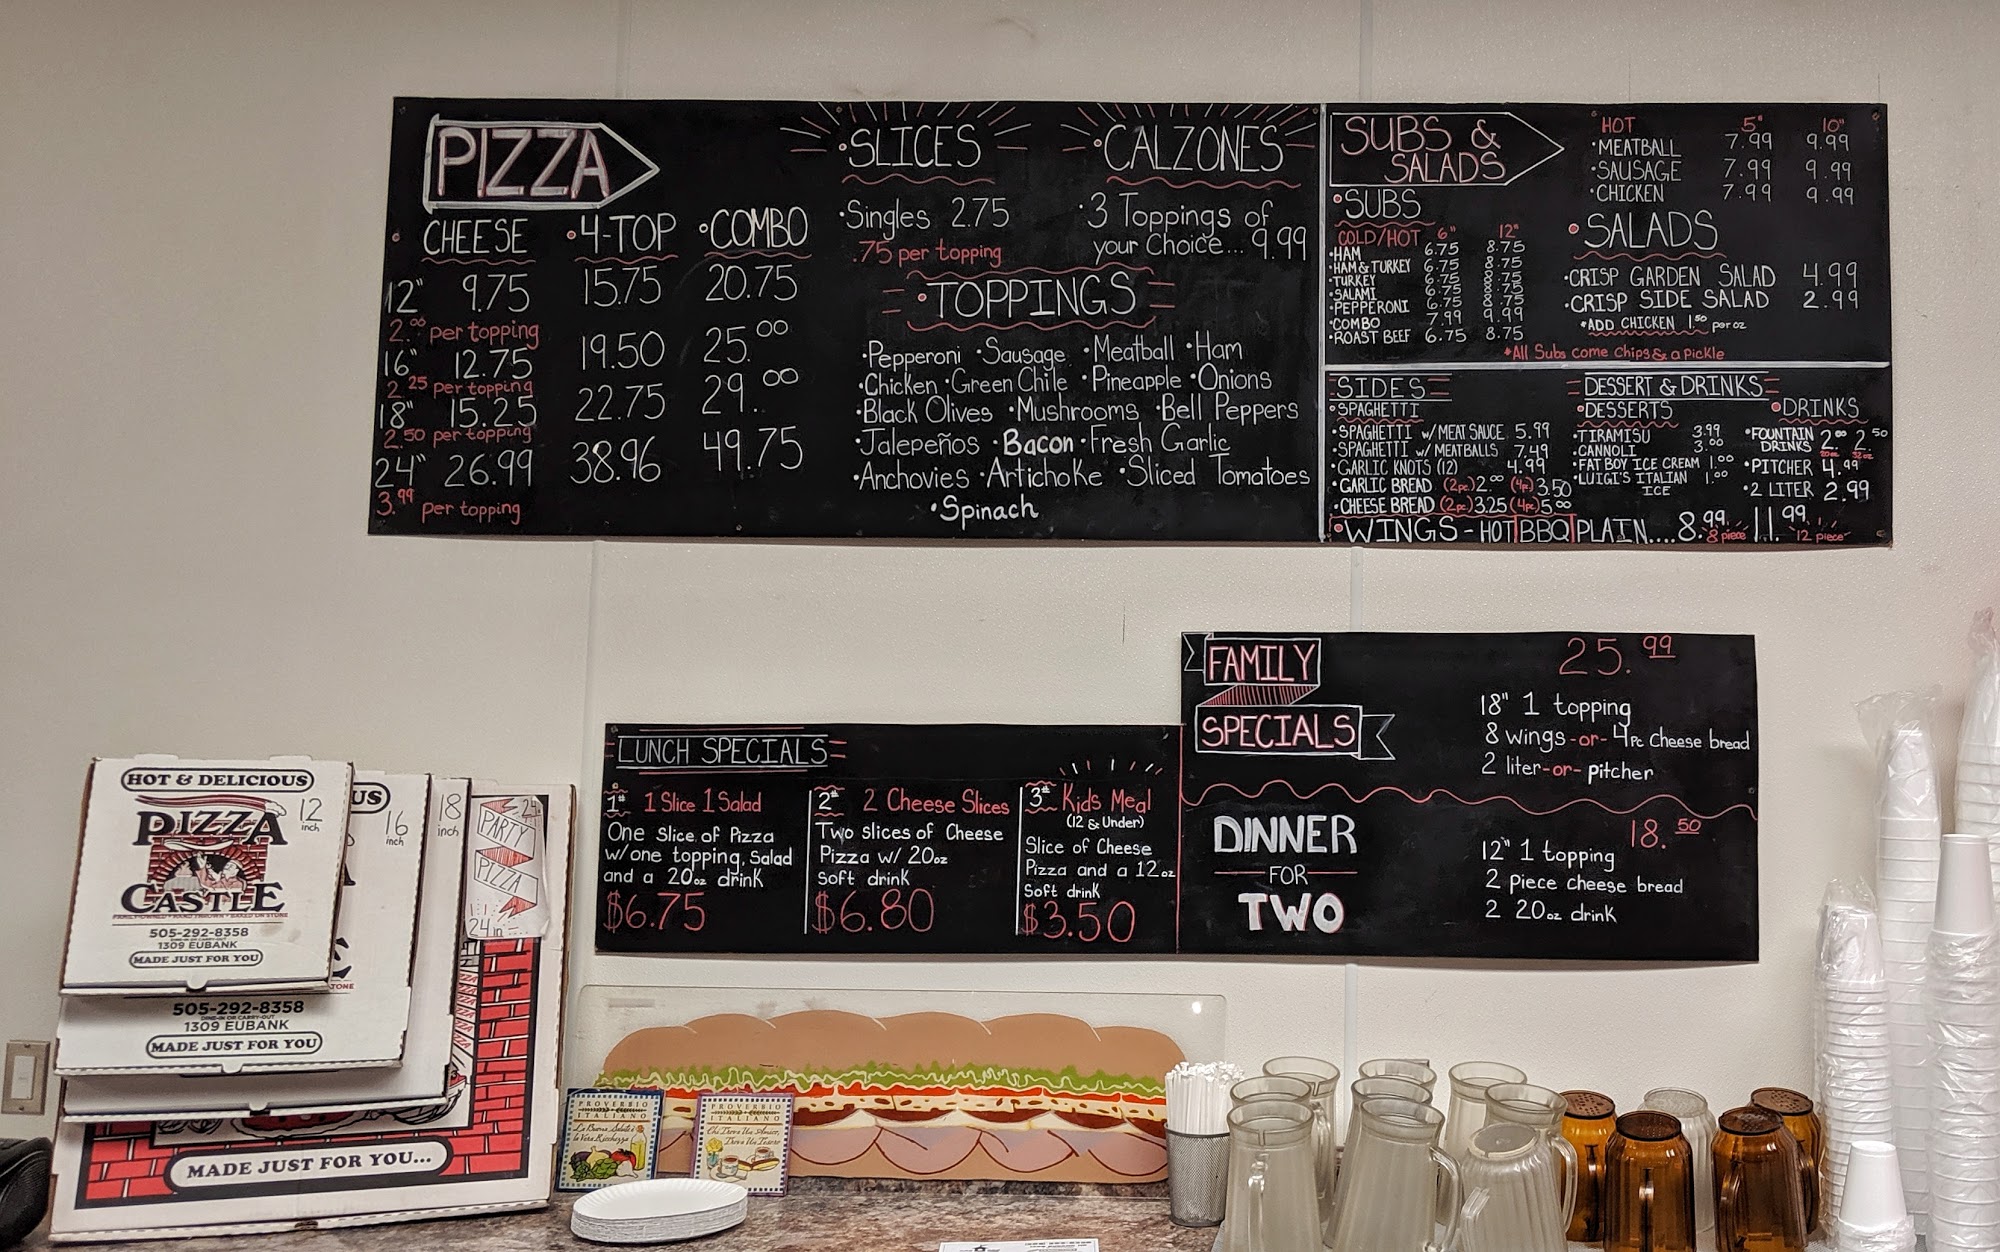 PIZZA
CHEESE •4-TOP •COMBO
12" 9.75 15.75 20.75
2.00 per topping
16" 12.75 19.50 25.00
2.25 per topping
18" 15.25 22.75 29.00
2.50 per topping
24" 26.99 38.96 49.75
3.99 per topping
•SLICES
•Singles 2.75
.75 per topping
•CALZONES
•3 Toppings of
your Choice... 9.99
•TOPPINGS
•Pepperoni •Sausage •Meatball •Ham
•Chicken •Green Chile •Pineapple •Onions
•Black Olives •Mushrooms •Bell Peppers
•Jalepeños •Bacon •Fresh Garlic
•Anchovies •Artichoke •Sliced Tomatoes
•Spinach
SUBS &
SALADS
•SUBS
COLD/HOT 6" 12"
•HAM 6.75 8.75
•HAM & TURKEY 6.75 8.75
•TURKEY 6.75 8.75
•SALAMI 6.75 8.75
•PEPPERONI 6.75 8.75
•COMBO 7.99 9.99
•ROAST BEEF 6.75 8.75
•HOT 5" 10"
•MEATBALL 7.99 9.99
•SAUSAGE 7.99 9.99
•CHICKEN 7.99 9.99
•SALADS
•CRISP GARDEN SALAD 4.99
•CRISP SIDE SALAD 2.99
*ADD CHICKEN 1.50 per oz
*All Subs come Chips & a pickle
SIDES
•SPAGHETTI
•SPAGHETTI w/MEAT SAUCE 5.99
•SPAGHETTI w/MEATBALLS 7.49
•GARLIC KNOTS (12) 4.99
•GARLIC BREAD (2pc.) 2.00 (4pc.) 3.50
•CHEESE BREAD (2pc.) 3.25 (4pc.) 5.00
•WINGS - HOT|BBQ|PLAIN.... 8.99 8 piece 11.99 12 piece
DESSERT & DRINKS
•DESSERTS
•TIRAMISU 3.99
•CANNOLI 3.00
•FAT BOY ICE CREAM 1.00
•LUIGI'S ITALIAN 1.00
ICE
•DRINKS
•FOUNTAIN 2.00 2.50
DRINKS 20oz 32oz
•PITCHER 4.99
•2 LITER 2.99
LUNCH SPECIALS
1# 1 Slice 1 Salad
One Slice of Pizza
w/one topping, Salad
and a 20oz drink
$6.75
2# 2 Cheese Slices
Two slices of Cheese
Pizza w/ 20oz
Soft drink
$6.80
3# Kids Meal
(12 & Under)
Slice of Cheese
Pizza and a 12oz
Soft drink
$3.50
FAMILY
SPECIALS
25.99
18" 1 topping
8 wings -or- 4pc Cheese bread
2 liter -or- pitcher
DINNER
FOR
TWO
18.50
12" 1 topping
2 piece cheese bread
2 20oz drink
HOT & DELICIOUS
PIZZA
CASTLE
12
inch
FAMILY OWNED • HAND THROWN • BAKED ON STONE
505-292-8358
DINE-IN OR CARRY-OUT
1309 EUBANK
MADE JUST FOR YOU
US
16
inch
TONE
505-292-8358
DINE-IN OR CARRY-OUT
1309 EUBANK
MADE JUST FOR YOU
18
inch
24
PARTY
PIZZA
24in
MADE JUST FOR YOU...
PROVERBIO
ITALIANO
La Buona Salute è
la Vera Ricchezza
PROVERBIO
ITALIANO
Chi Trova Un Amico,
Trova Un Tesoro